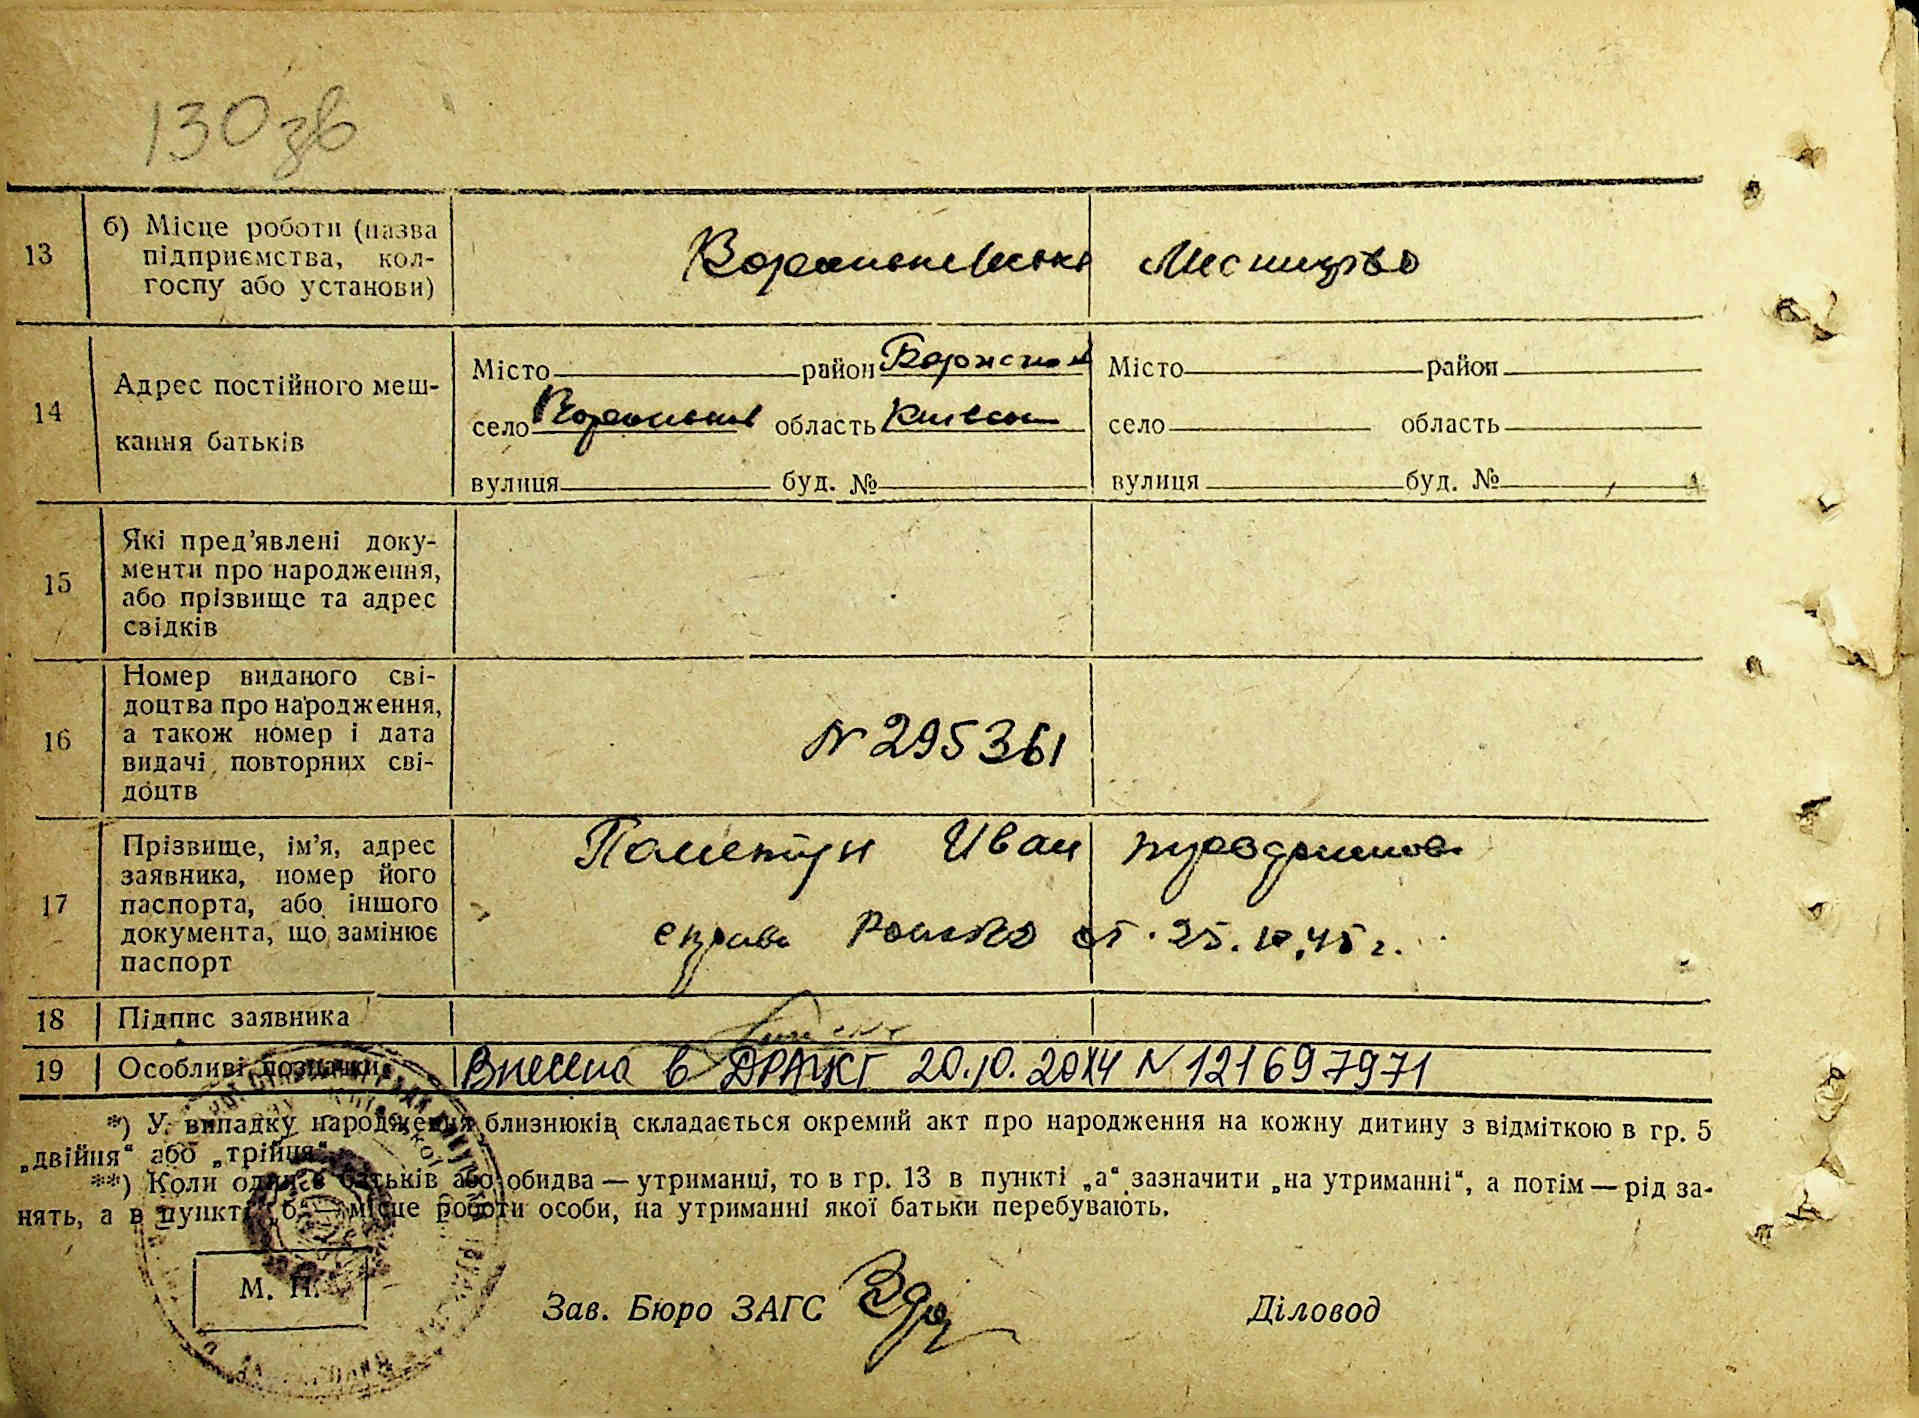 130 зв
13
б) Місце роботи (назва
підприємства, кол-
госпу або установи)
14
Адрес постійного меш-
кання батьків
Місто район
село область
вулиця буд. №
Місто район
село область
вулиця буд. №
15
Які пред’явлені доку-
менти про народження,
або прізвище та адрес
свідків
16
Номер виданого сві-
доцтва про народження,
а також номер і дата
видачі повторних сві-
доцтв
N 295361
17
Прізвище, ім’я, адрес
заявника, номер його
паспорта, або іншого
документа, що замінює
паспорт
Иван
от 25.10.45 г.
18 Підпис заявника
19 Особливі позначки
Внесено в ДРАЦСГ 20.10.2014 N 121697971
*) У випадку народження близнюків складається окремий акт про народження на кожну дитину з відміткою в гр. 5
„двійня“ або „трійня“.
**) Коли один з батьків або обидва — утриманці, то в гр. 13 в пункті „а“ зазначити „на утриманні“, а потім — рід за-
нять, а в пункті „б“ — місце роботи особи, на утриманні якої батьки перебувають.
М. П.
Зав. Бюро ЗАГС
Діловод